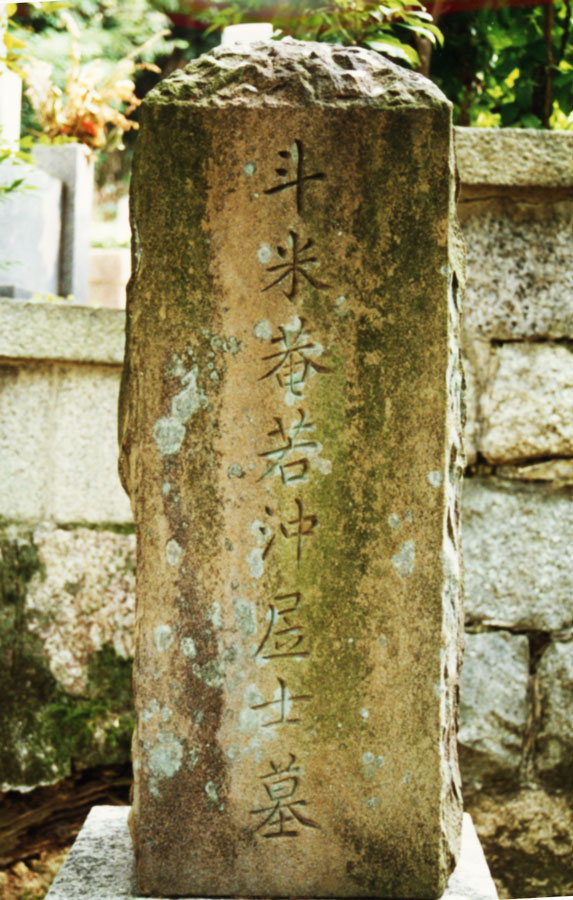 斗米菴若冲居士墓